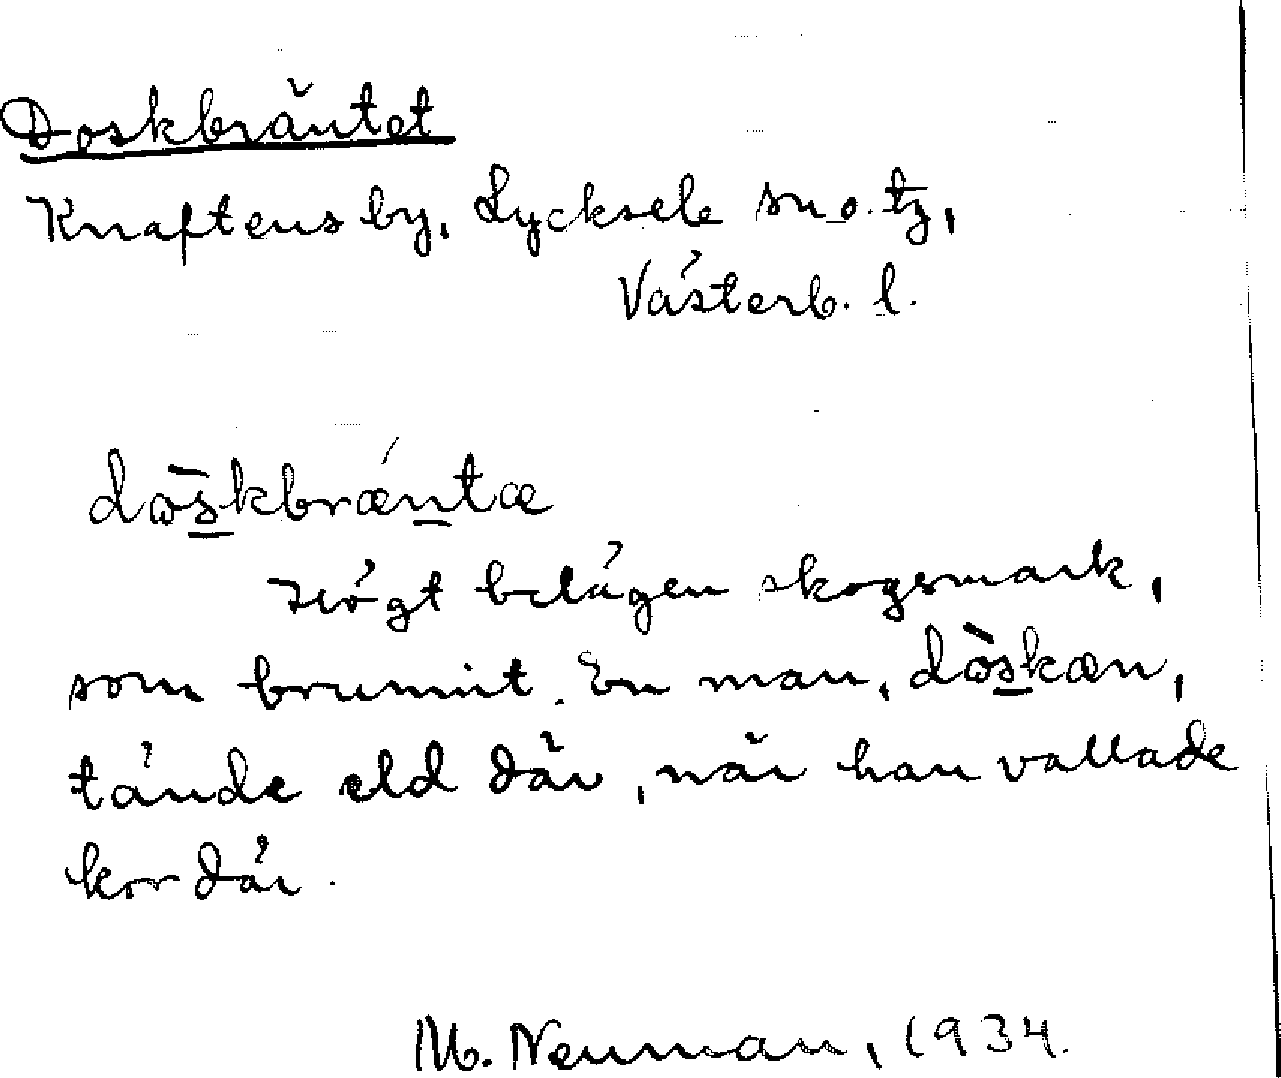 Doskbräntet
Knaftens by, Lycksele sn o. tg,
Västerb. l.
dωs̲kbræn̲tæ
Högt belägen skogsmark,
som brunnit. En man, dὼs̲kæn,
tände eld där, när han vallade
kor där.
M. Neuman, 1934.